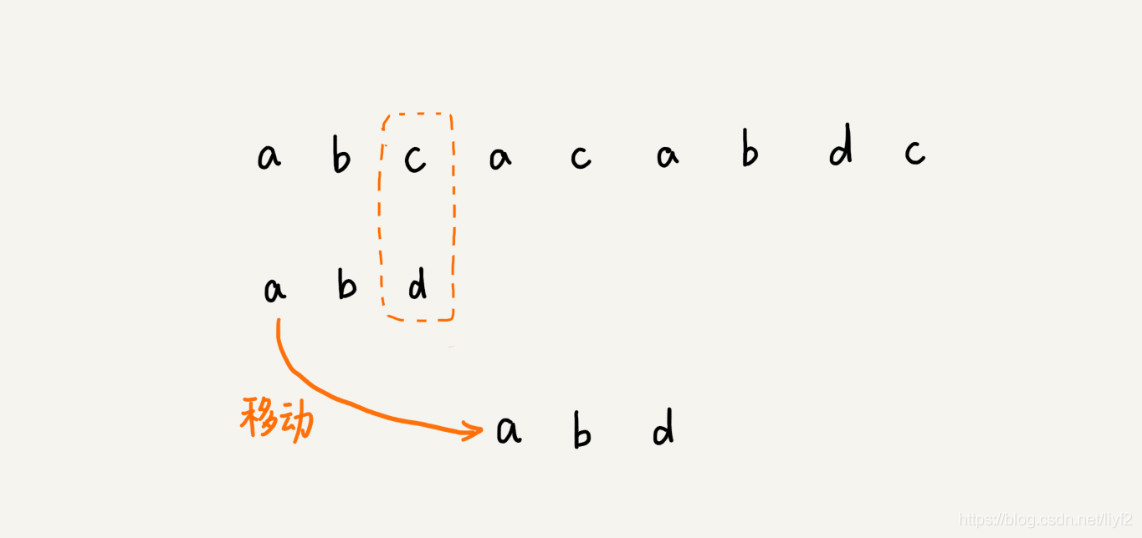 a b c a c a b d c
a b d
移动
a b d
https://blog.csdn.net/liyf2